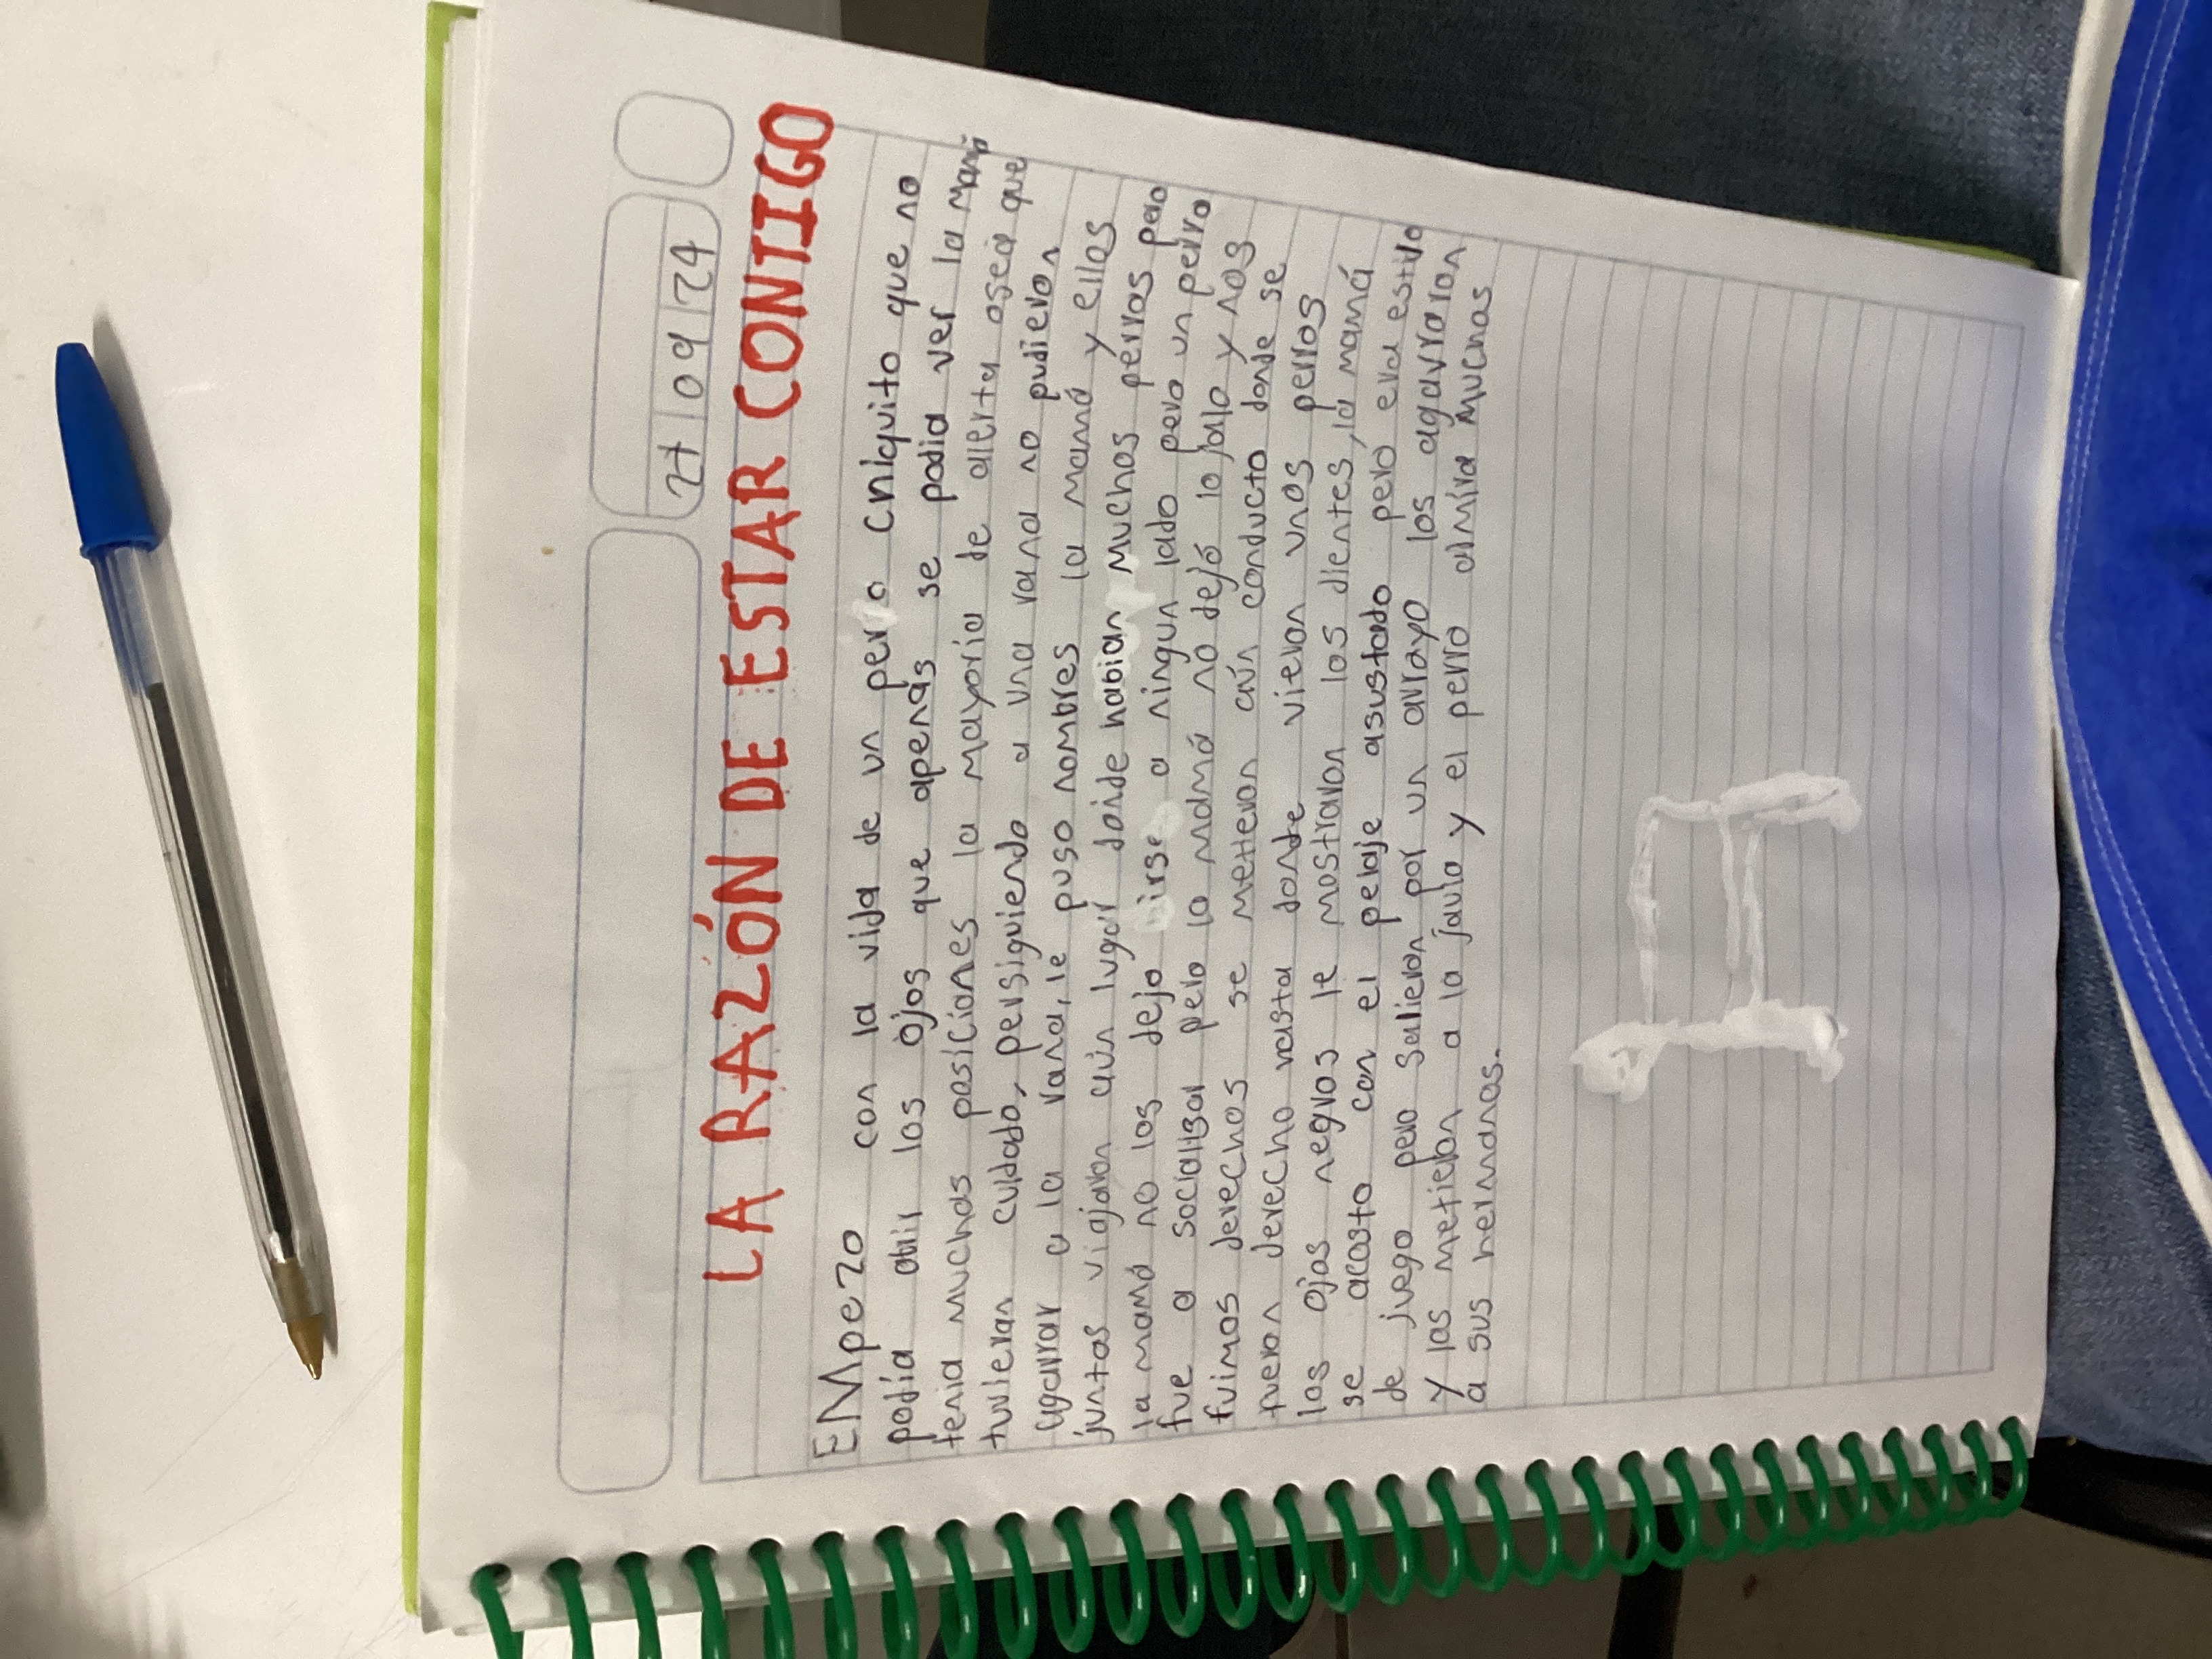 27 09 24
LA RAZÓN DE ESTAR CONTIGO
EMpezo con la vida de un perro chiquito que no
podía abrir los ojos que apenas se podia ver la mamá
tenia muchas posiciones la mayoria de alerta osea que
tuvieran cuidado, persiguiendo a una rana no pudieron
agarrar a la rana, le puso nombres la mamá y ellos
juntos viajaron aún lugar donde habian muchos perros pero
la mamá no los dejo irse a ningun lado pero un perro
fue a socializar pero la mamá no dejó lo jalo y nos
fuimos derechos se metieron aún conducto donde se
fueron derecho hasta donde vieron unos perros
los ojos negros le mostraron los dientes, la mamá
se acosto con el pelaje asustado pero era estilo
de juego pero salieron por un arroyo los agarraron
y los metieron a la jaula y el perro almira muchos
a sus hermanos.